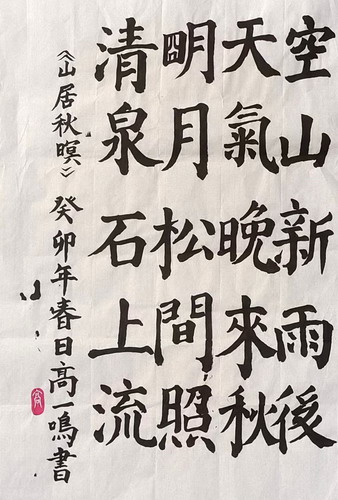 空山新雨後
天氣晚來秋
明月松間照
清泉石上流
《山居秋暝》 癸卯年春日高一鳴書